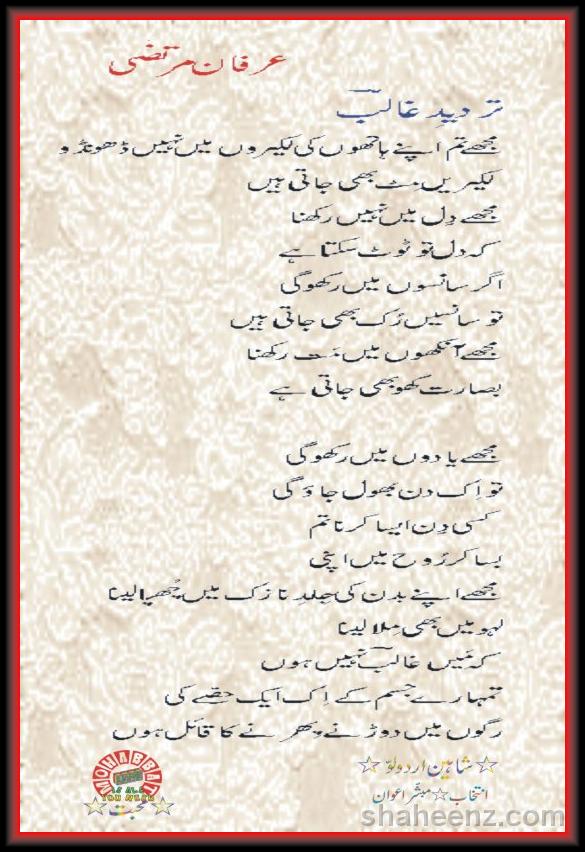 عرفان مرتضٰی
تردیدِ غالبؔ
مجھے تم اپنے ہاتھوں کی لکیروں میں نہیں ڈھونڈو
لکیریں مٹ بھی جاتی ہیں
مجھے دِل میں نہیں رکھنا
کہ دل تو ٹوٹ سکتا ہے
اگر سانسوں میں رکھو گی
تو سانسیں رُک بھی جاتی ہیں
مجھے آنکھوں میں مَت رکھنا
بصارت کھو بھی جاتی ہے
مجھے یادوں میں رکھو گی
تو اِک دن بھول جاؤ گی
کسی دِن ایسا کرنا تم
بسا کر رُوح میں اپنی
مجھے اپنے بدن کی جِلدِ نازک میں چُھپا لینا
لہو میں بھی مِلا لینا
کہ مَیں غالبؔ نہیں ہوں
تمہارے جسم کے اِک ایک حصّے کی
رگوں میں دوڑنے پھرنے کا قائل ہوں
☆ شاہین اردو لوّ ☆
انتخاب ☆ مبشر اعوان
MOHABBAT
IS ALL
YOU NEED
☆ محبت ☆
shaheenz.com